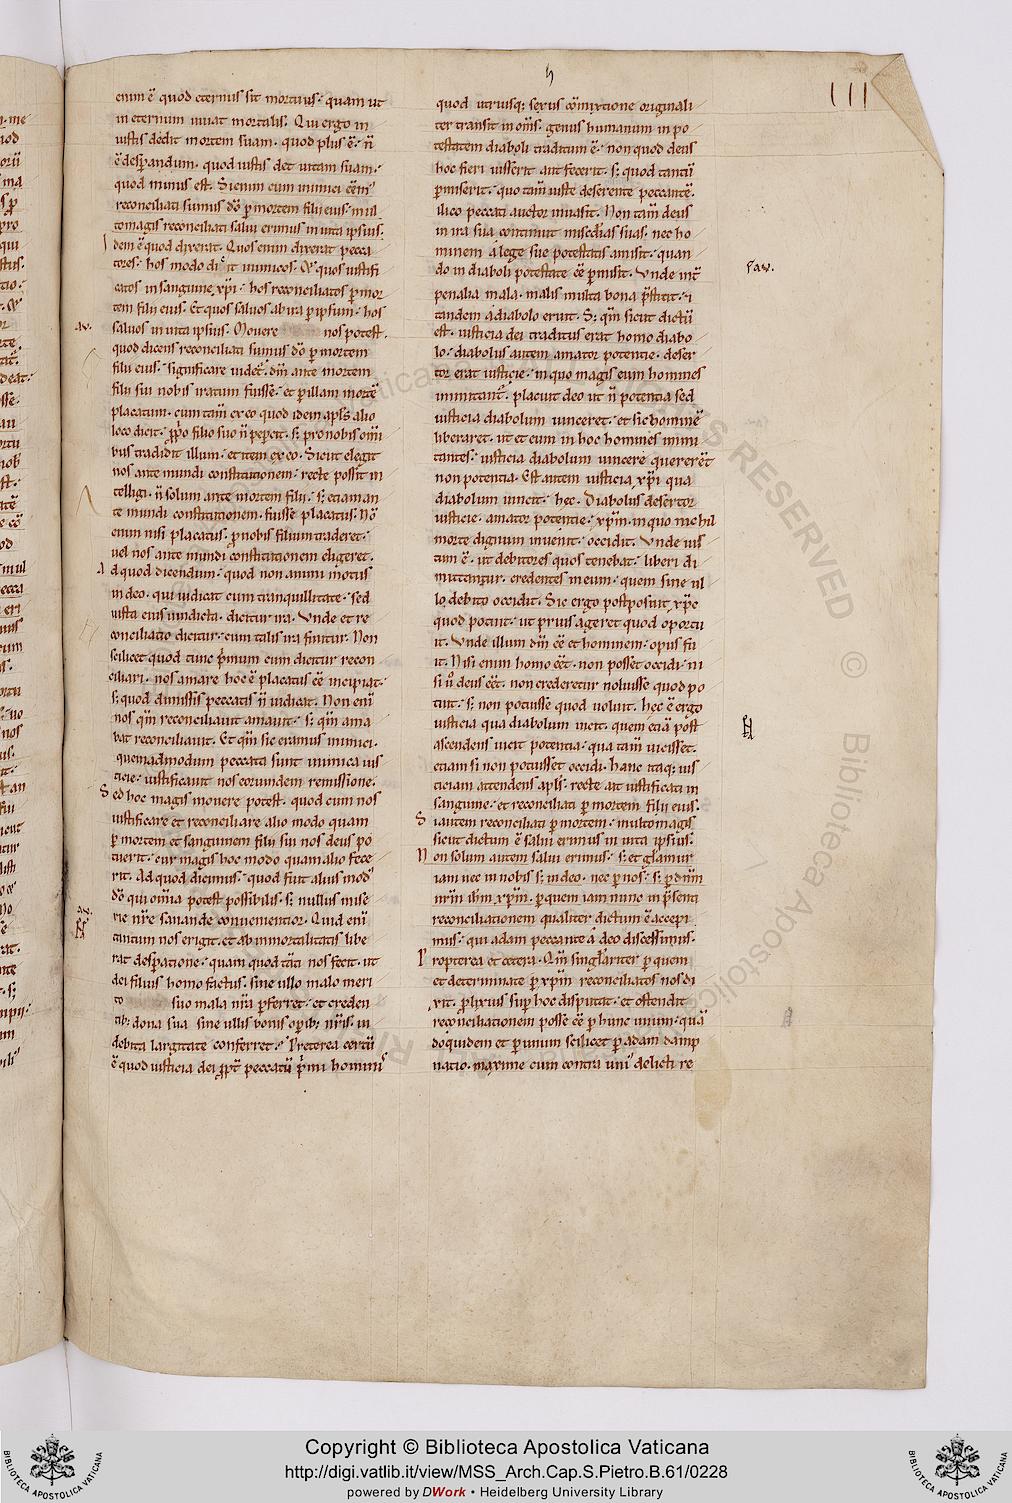 111
enim ē quod eternus sit mortuus· quam ut
in eternum uiuat mortalis. Qui ergo in
iustis dedit mortem suam· quod plus ē· n̄
ē desꝑandum· quod iustis det uitam suam·
quod minus est. Si enim cum inimici eēm᷒
reconciliati sumus dō ꝑ mortem filii eius· mul
tomagis reconciliati salui erimus in uita ipsius.
Idem ē quod dixerat. Quos enim dixerat pecca
tores· hos modo dicit inimicos. & quos iustifi
catos in sanguine xp̄i· hos reconciliatos ꝑ mor
tem filii eius. Et quos saluos ab ira ꝑ ipsum· hos
saluos in uita ipsius. Mouere nos potest·
quod dicens reconciliati sumus dō ꝑ mortem
filii eius· significare uidet᷒· dm̄ ante mortem
filii sui nobis iratum fuisse· et ꝑ illam mortē
placatum· cum tam̄ ex eo quod idem apl̄s alio
loco dicit· ꝓprio filio suo n̄ peꝑcit· s; pro nobis om̄i
bus tradidit illum· et item ex eo. Sicut elegit
nos ante mundi constitutionem· recte possit in
telligi· n̄ solum ante mortem filii· s; etiam an
te mundi constitutionem· fuisse placatus. Nō
enim nisi placatus· ꝓ nobis filium traderet·
uel nos ante mundi constitutionem eligeret.
Ad quod dicendum· quod non animi motus
in deo· qui iudicat cum tranquillitate· sed
iusta eius uindicta· dicitur ira. Unde et re
conciliatio dicitur· cum talis ira finitur. Non
scilicet quod tunc p̄mum eum dicitur recon
ciliari· nos amare hoc ē placatus eē incipiat·
s; quod dimissis peccatis n̄ iudicat. Non enī
nos qm̄ reconciliauit amauit· s; qm̄ ama
bat reconciliauit. Et qm̄ sic eramus inimici·
quemadmodum peccata sunt inimica ius
ticie· iustificauit nos eorundem remissione.
Sed hoc magis mouere potest· quod cum nos
iustificare et reconciliare alio modo quam
ꝑ mortem et sanguinem filii sui nos deus po
tuerit· cur magis hoc modo quam alio fece
rit. Ad quod dicimus· quod fuit alius mod᷒
dō qui om̄ia potest possibilis· s; nullus mise
rie nr̄e sanande conuenientior. Quid enī
tantum nos erigit· et ab inmortalitatis libe
rat desꝑatione· quam quod tāti nos fecit· ut
dei filius homo factus· sine ullo malo meri
to suo mala nr̄a ꝑferret· et creden
tib; dona sua sine ullis bonis oꝑib; nr̄is· in
debita largitate conferret? Preterea certū
ē quod iusticia dei ꝓpt᷒ peccatū p̄mi homini᷒
quod utriusq; sexus cōmixtione originali
ter transit in om̄s· genus humanum in po
testatem diaboli traditum ē· non quod deus
hoc fieri iusserit aut fecerit· s; quod tantū
ꝑmiserit· quo tam̄ iuste deserente peccantē·
ilico peccati auctor inuasit. Non tam̄ deus
in ira sua continuit misc̄dias suas· nec ho
minem a lege sue potestatis amisit· quan
do in diaboli potestate eē ꝑmisit. Unde int᷒
penalia mala· malis multa bona p̄stitit· &
tandem a diabolo eruit. S; qm̄ sicut dictū
est· iusticia dei traditus erat homo diabo
lo· diabolus autem amator potentie· deser
tor erat iusticie· in quo magis eum homines
imitant᷒· placuit deo ut n̄ potentia sed
iusticia diabolum uinceret· et sic hominē
liberaret· ut et eum in hoc homines imi
tantes· iusticia diabolum uincere quererēt
non potentia. Est autem iusticia xp̄i qua
diabolum uincit· hęc. Diabolus desertor
iusticie· amator potentie· xp̄m in quo nichil
morte dignum inuenit· occidit. Unde ius
tum ē· ut debitores quos tenebat· liberi di
mittantur· credentes in eum· quem sine ul
lo debito occidit. Sic ergo postposuit xp̄c
quod potuit· ut prius ageret quod oportu
it. Unde illum dm̄ eē et hominem· opus fu
it. Nisi enim homo eēt· non posset occidi· ni
si ū deus eēt· non crederetur noluisse quod po
tuit· s; non potuisse quod uoluit. hęc ē ergo
iusticia qua diabolum uicit· quem etiā post
ascendens uicit potentia· qua tam̄ uicisset·
etiam si non potuisset occidi. hanc itaq; ius
ticiam attendens apl̄s· recte ait iustificati in
sanguine· et reconciliati ꝑ mortem filii eius.
Si autem reconciliati ꝑ mortem· multo magis
sicut dictum ē salui erimus in uita ipsius.
Non solum autem salui erimus· s; et gl̄amur
iam nec in nobis s; in deo· nec ꝑ nos· s; ꝑ dnm̄
nrm̄ ihm̄ xp̄m· ꝑ quem iam nunc in p̄senti
reconciliationem qualiter dictum ē accepi
mus· qui adam peccante a deo discessimus.
Propterea et cetera. Qm̄ singlariter ꝑ quem
et determinate ꝑ xp̄m reconciliatos nos di
xit· ꝓlixius suꝑ hoc disputat· et ostendit
reconciliationem posse eē ꝑ hunc unum· quā
doquidem et ꝑ unum scilicet ꝑ adam damp
natio· maxime cum contra unī delicti re
Copyright © Biblioteca Apostolica Vaticana
http://digi.vatlib.it/view/MSS_Arch.Cap.S.Pietro.B.61/0228
powered by DWork • Heidelberg University Library